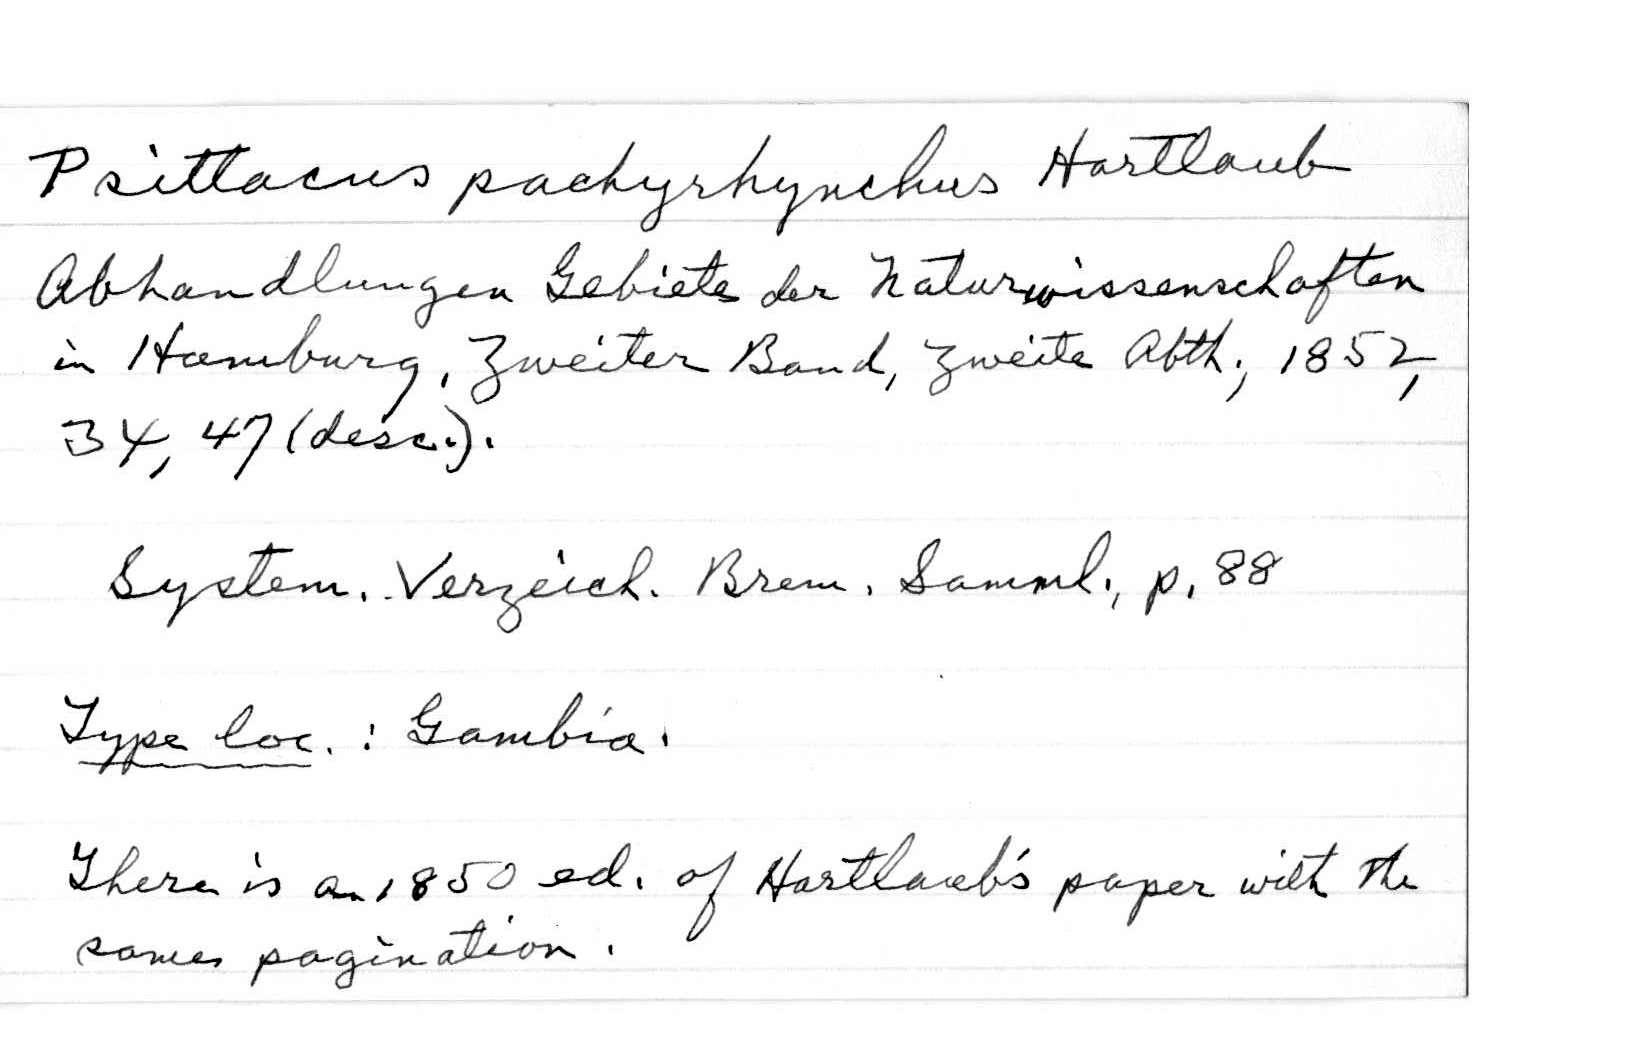 Psittacus pachyrhynchus Hartlaub
Abhandlungen Gebiete der Naturwissenschaften
in Hamburg, Zweiter Band, Zweite Abth., 1852,
34, 47 (desc.).
System. Verzeich. Brem. Samml., p. 88
Type loc. : Gambia.
There is an 1850 ed. of Hartlaub's paper with the
same pagination.